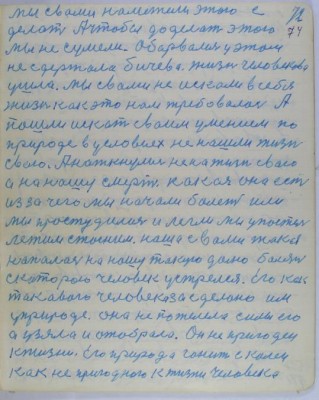 мы свами наметили этого с
делать А чтобы доделат этого
мы не сумели. Оборвался у этом
не сдержала бичева. жизн человекова
ушла. мы свами не искали в себя
жизн как это нам требовалос А
пошли искат своим умением по
природе в условиях не нашли жизн
свою. А наткнулис не на жизн свою
а на нашу смерт. какая она ест
из за чего мы начали болет или
мы простудилис и легли мы у постел
лежим стоним. наша с вами жаль
напала на нашу такую долю
скоторою человек устрелся. Его как
такавого человека за сделано им
у природе. она не пожалела силы его
а узяла и отобрала. Он не пригодец
к жизни. Его природа гонит с колеи
как не пригодного к жизни человека
72
74